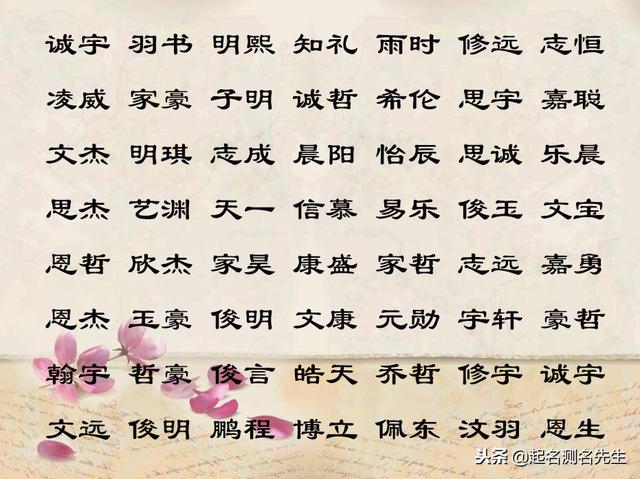 诚宇 羽书 明熙 知礼 雨时 修远 志恒
凌威 家豪 子明 诚哲 希伦 思宇 嘉聪
文杰 明琪 志成 晨阳 怡辰 思诚 乐晨
思杰 艺渊 天一 信慕 易乐 俊玉 文宝
恩哲 欣杰 家昊 康盛 家哲 志远 嘉勇
恩杰 王豪 俊明 文康 元勋 宇轩 豪哲
翰宇 哲豪 俊言 皓天 乔哲 修宇 诚宇
文远 俊明 鹏程 博立 佩东 汶羽 恩生
头条 @起名测名先生